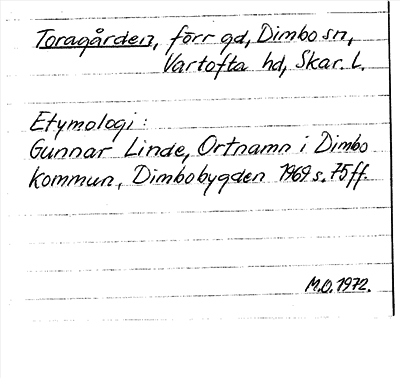 Toragården, förr gd, Dimbo sn,
Vartofta hd, Skar. l.
Etymologi:
Gunnar Linde, Ortnamn i Dimbo
kommun, Dimbobygden 1969 s. 75 ff.
M.O. 1972.